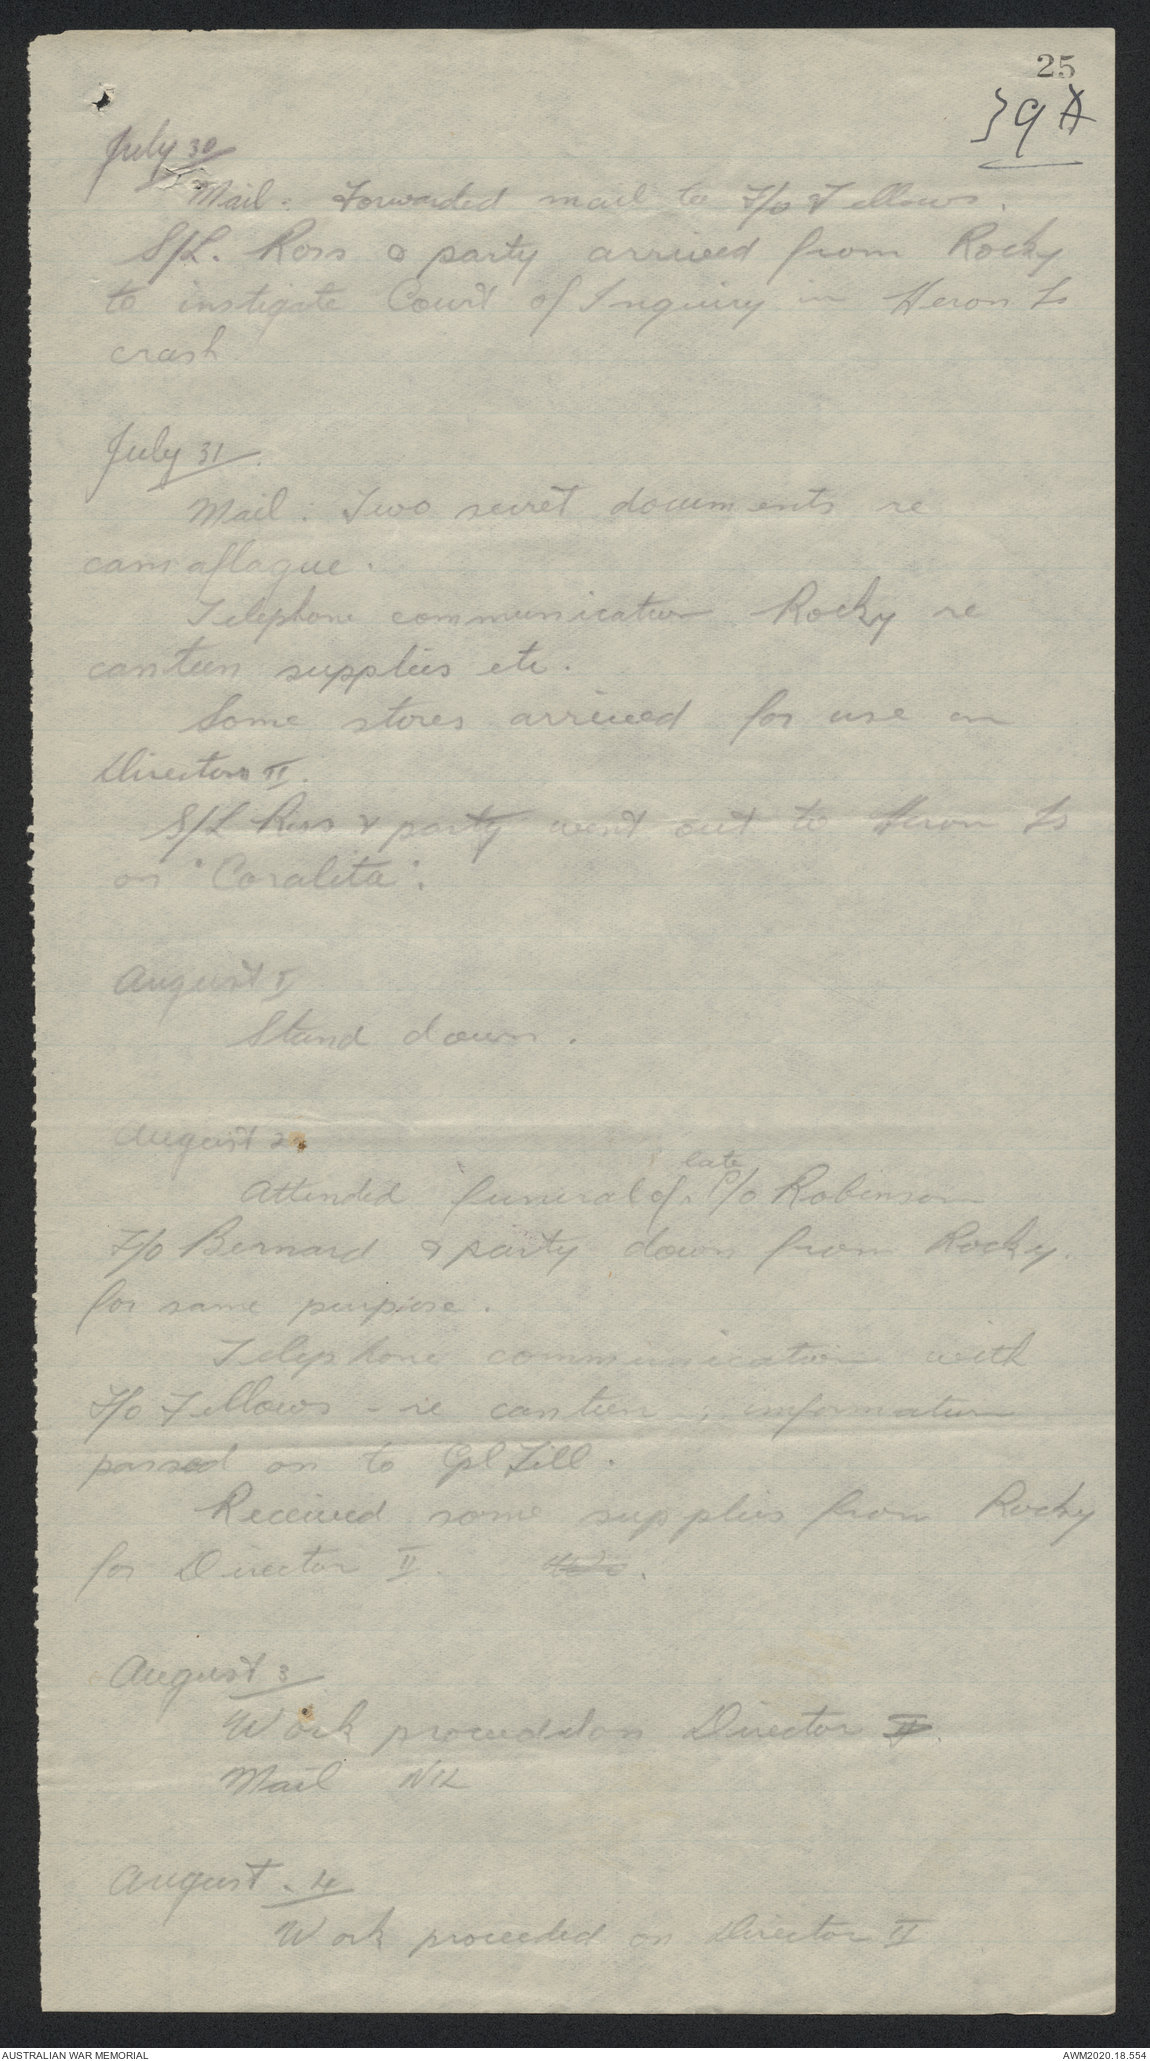 25
39A
July 30
Mail: Forwarded mail to F/o Fellows.
S/L. Ross & party arrived from Rocky
to instigate Court of Inquiry in Heron Is
crash
July 31.
Mail: Two secret documents re
camaflague.
Telephone communication Rocky re
canteen supplies etc.
Some stores arrived for use on
Director II.
S/L Ross & party went out to Heron Is
on "Coralita".
August 1
Stand down.
August 2.
late
Attended funeral of P/o Robinson
F/o Bernard & party down from Rocky.
for same purpose.
Telephone communication with
F/o Fellows - re canteen; information
passed on to Cpl Lill.
Received some supplies from Rocky
for Director II.
August 3
Work proceeded on Director II.
Mail NIL
August. 4
Work proceeded on Director II
AUSTRALIAN WAR MEMORIAL
AWM2020.18.554